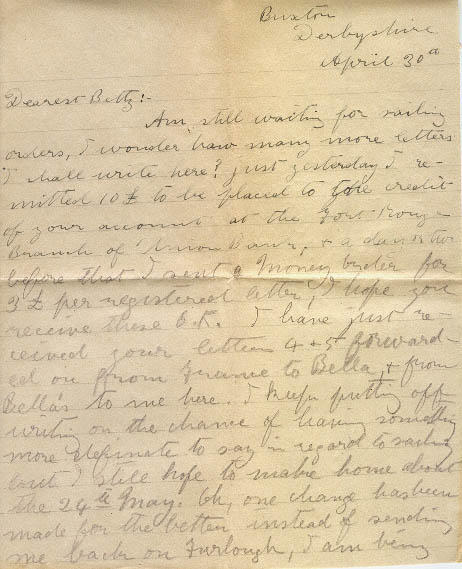 Buxton
Derbyshire
April 30th
Dearest Betty:-
Am still waiting for sailing
orders, I wonder how many more letters
I shall write here? just yesterday I re-
mitted 10 £ to be placed to the credit
of your account at the Fort Rouge
Branch of Union Bank, & a day or two
before that I sent a Money order for
3 £ per registered letter, I hope you
receive these O.K. I have just re-
ceived your letters 4 + 5 forward-
ed on from Frame to Bella, & from
Bella's to me here. I keep putting off
writing on the chance of having something
more definate to say in regard to sailing
but I still hope to make home about
the 24th May. Oh, one change has been
made for the better instead of sending
me back on Furlough, I am being